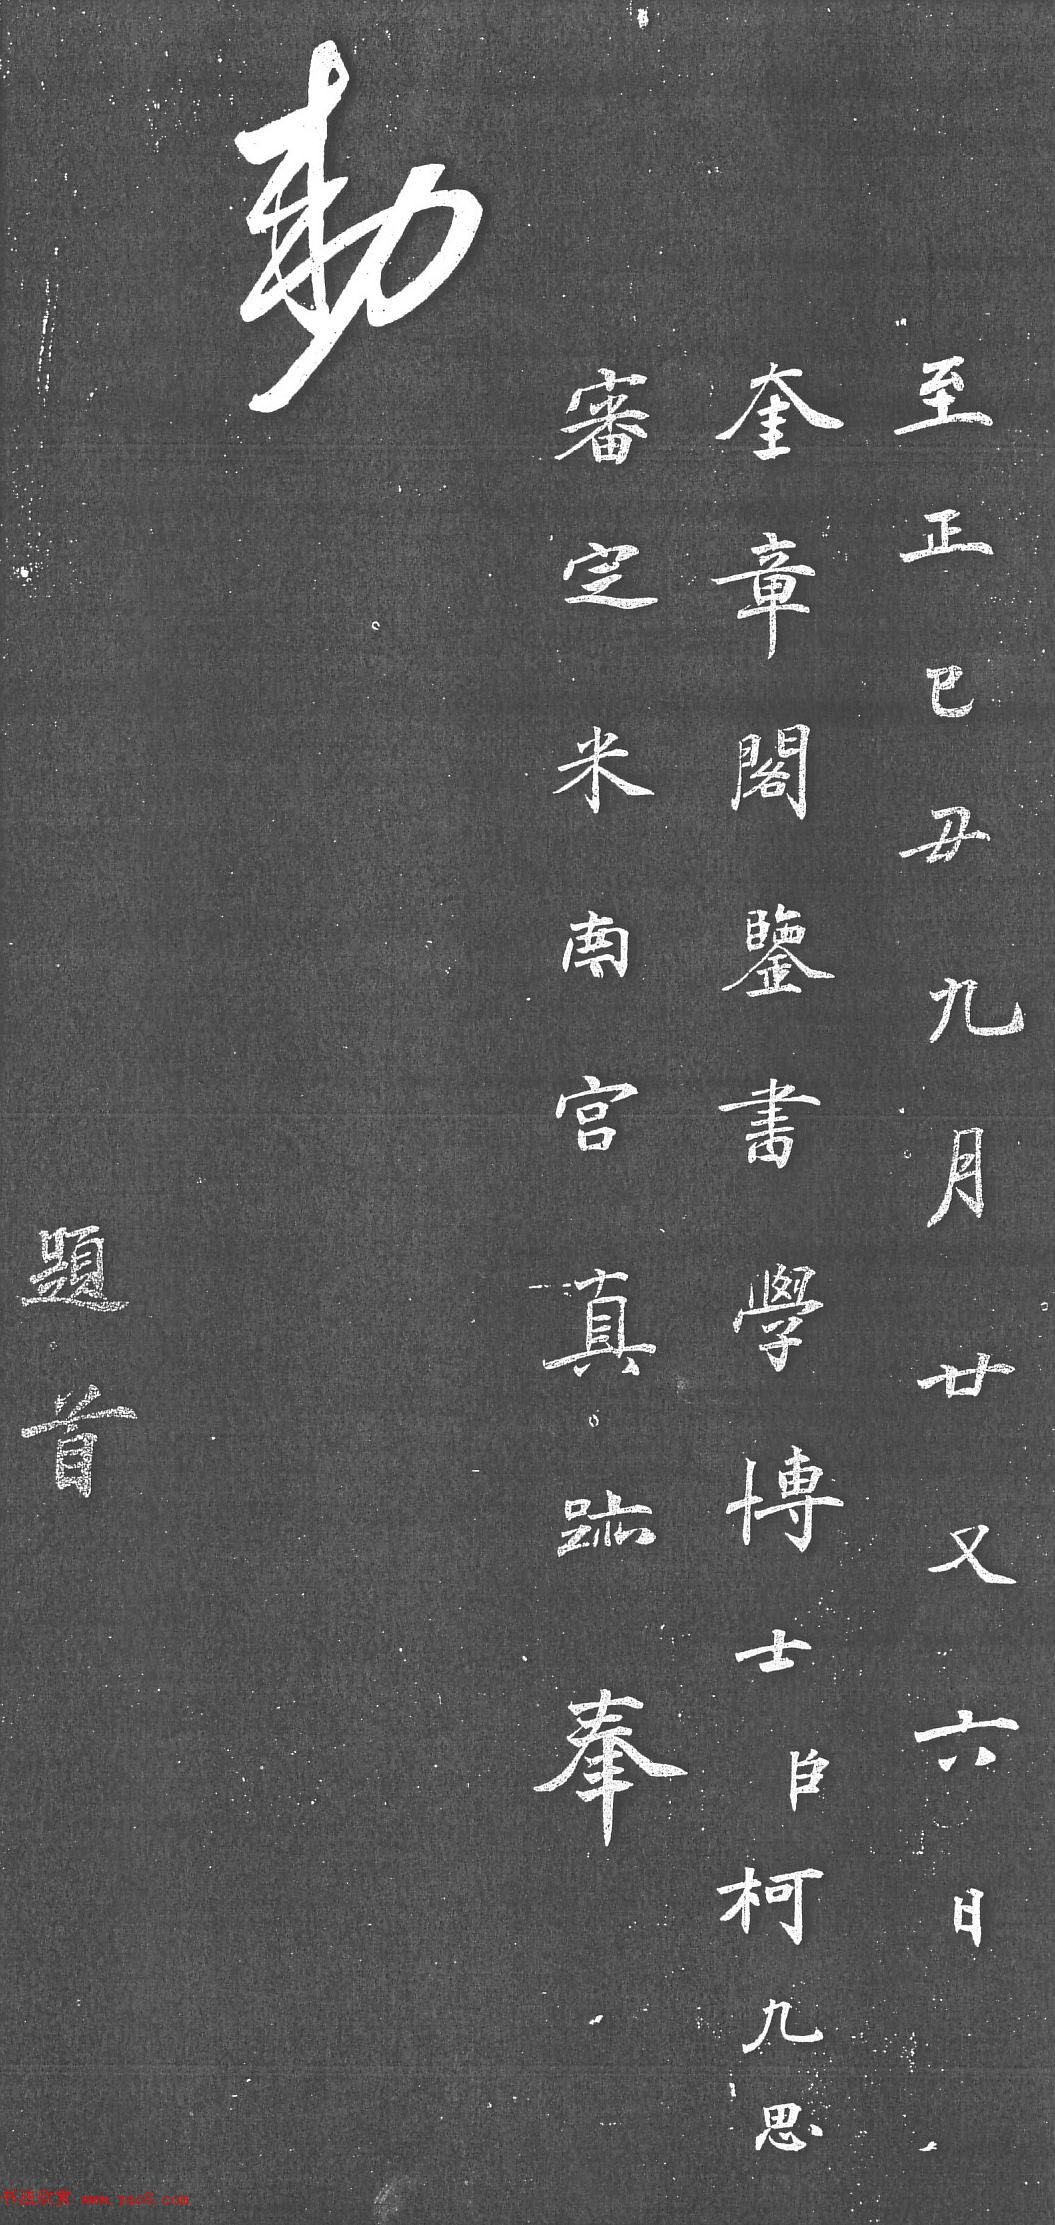 至正己丑九月廿又六日
奎章閣鑒書學博士臣柯九思
審定米南宮真跡奉
勅
題首
书法欣赏 www.yac8.com